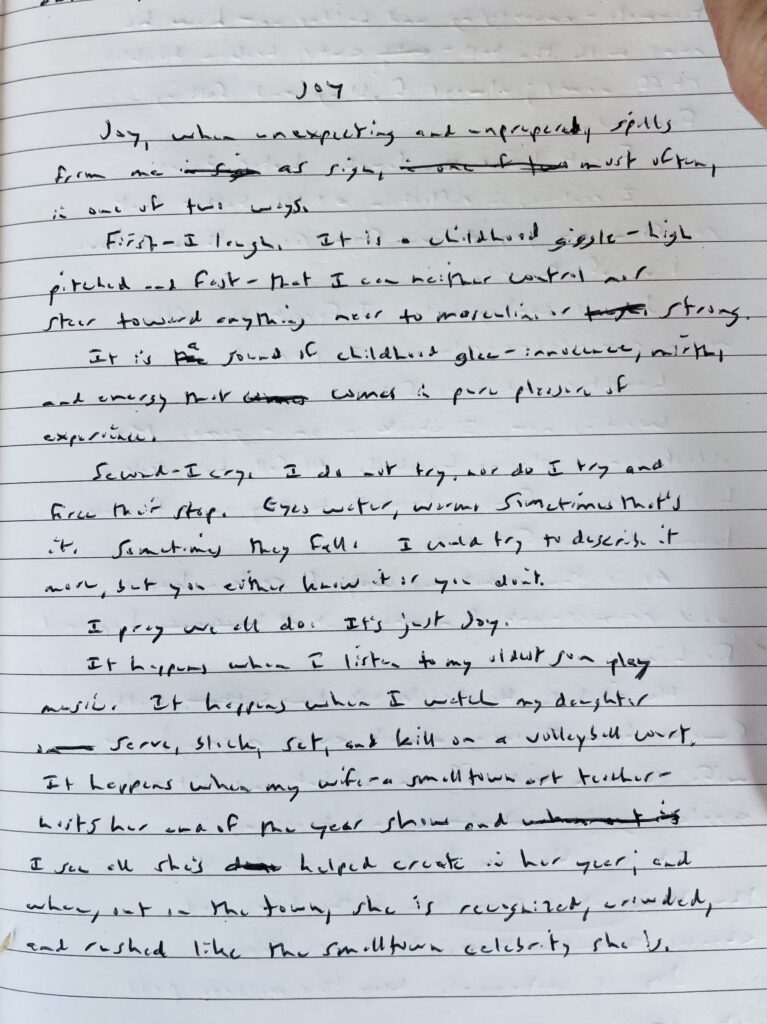 JOY
Joy, when unexpecting and unprepared, spills
from me as sign, most often,
in one of two ways.
First - I laugh. It is a childhood giggle - high
pitched and fast - that I can neither control nor
steer toward anything near to masculine or strong.
It is a sound of childhood glee - innocence, mirth,
and energy that comes in pure pleasure of
experience.
Second - I cry. I do not try, nor do I try and
force their stop. Eyes water, warm. Sometimes that's
it. Sometimes they fall. I could try to describe it
more, but you either know it or you don't.
I pray we all do. It's just Joy.
It happens when I listen to my oldest son play
music. It happens when I watch my daughter
serve, block, set, and kill on a volleyball court.
It happens when my wife - a smalltown art teacher -
hosts her end of the year show and
I see all she's helped create in her year; and
when, out in the town, she is recognized, crowded,
and rushed like the smalltown celebrity she is.